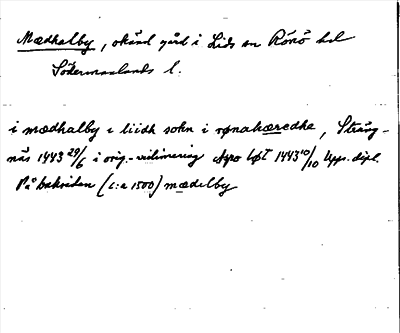 Mædhalby, okänd gård i Lids sn Rönö hd
Södermanlands l.
i mædhalby i liidh sokn i rønahæredhe, Sträng-
näs 1443 29/6 i orig.-vidimering Nyo 1443 10/10 Upps. dipl.
På baksidan (c:a 1500) mædelby